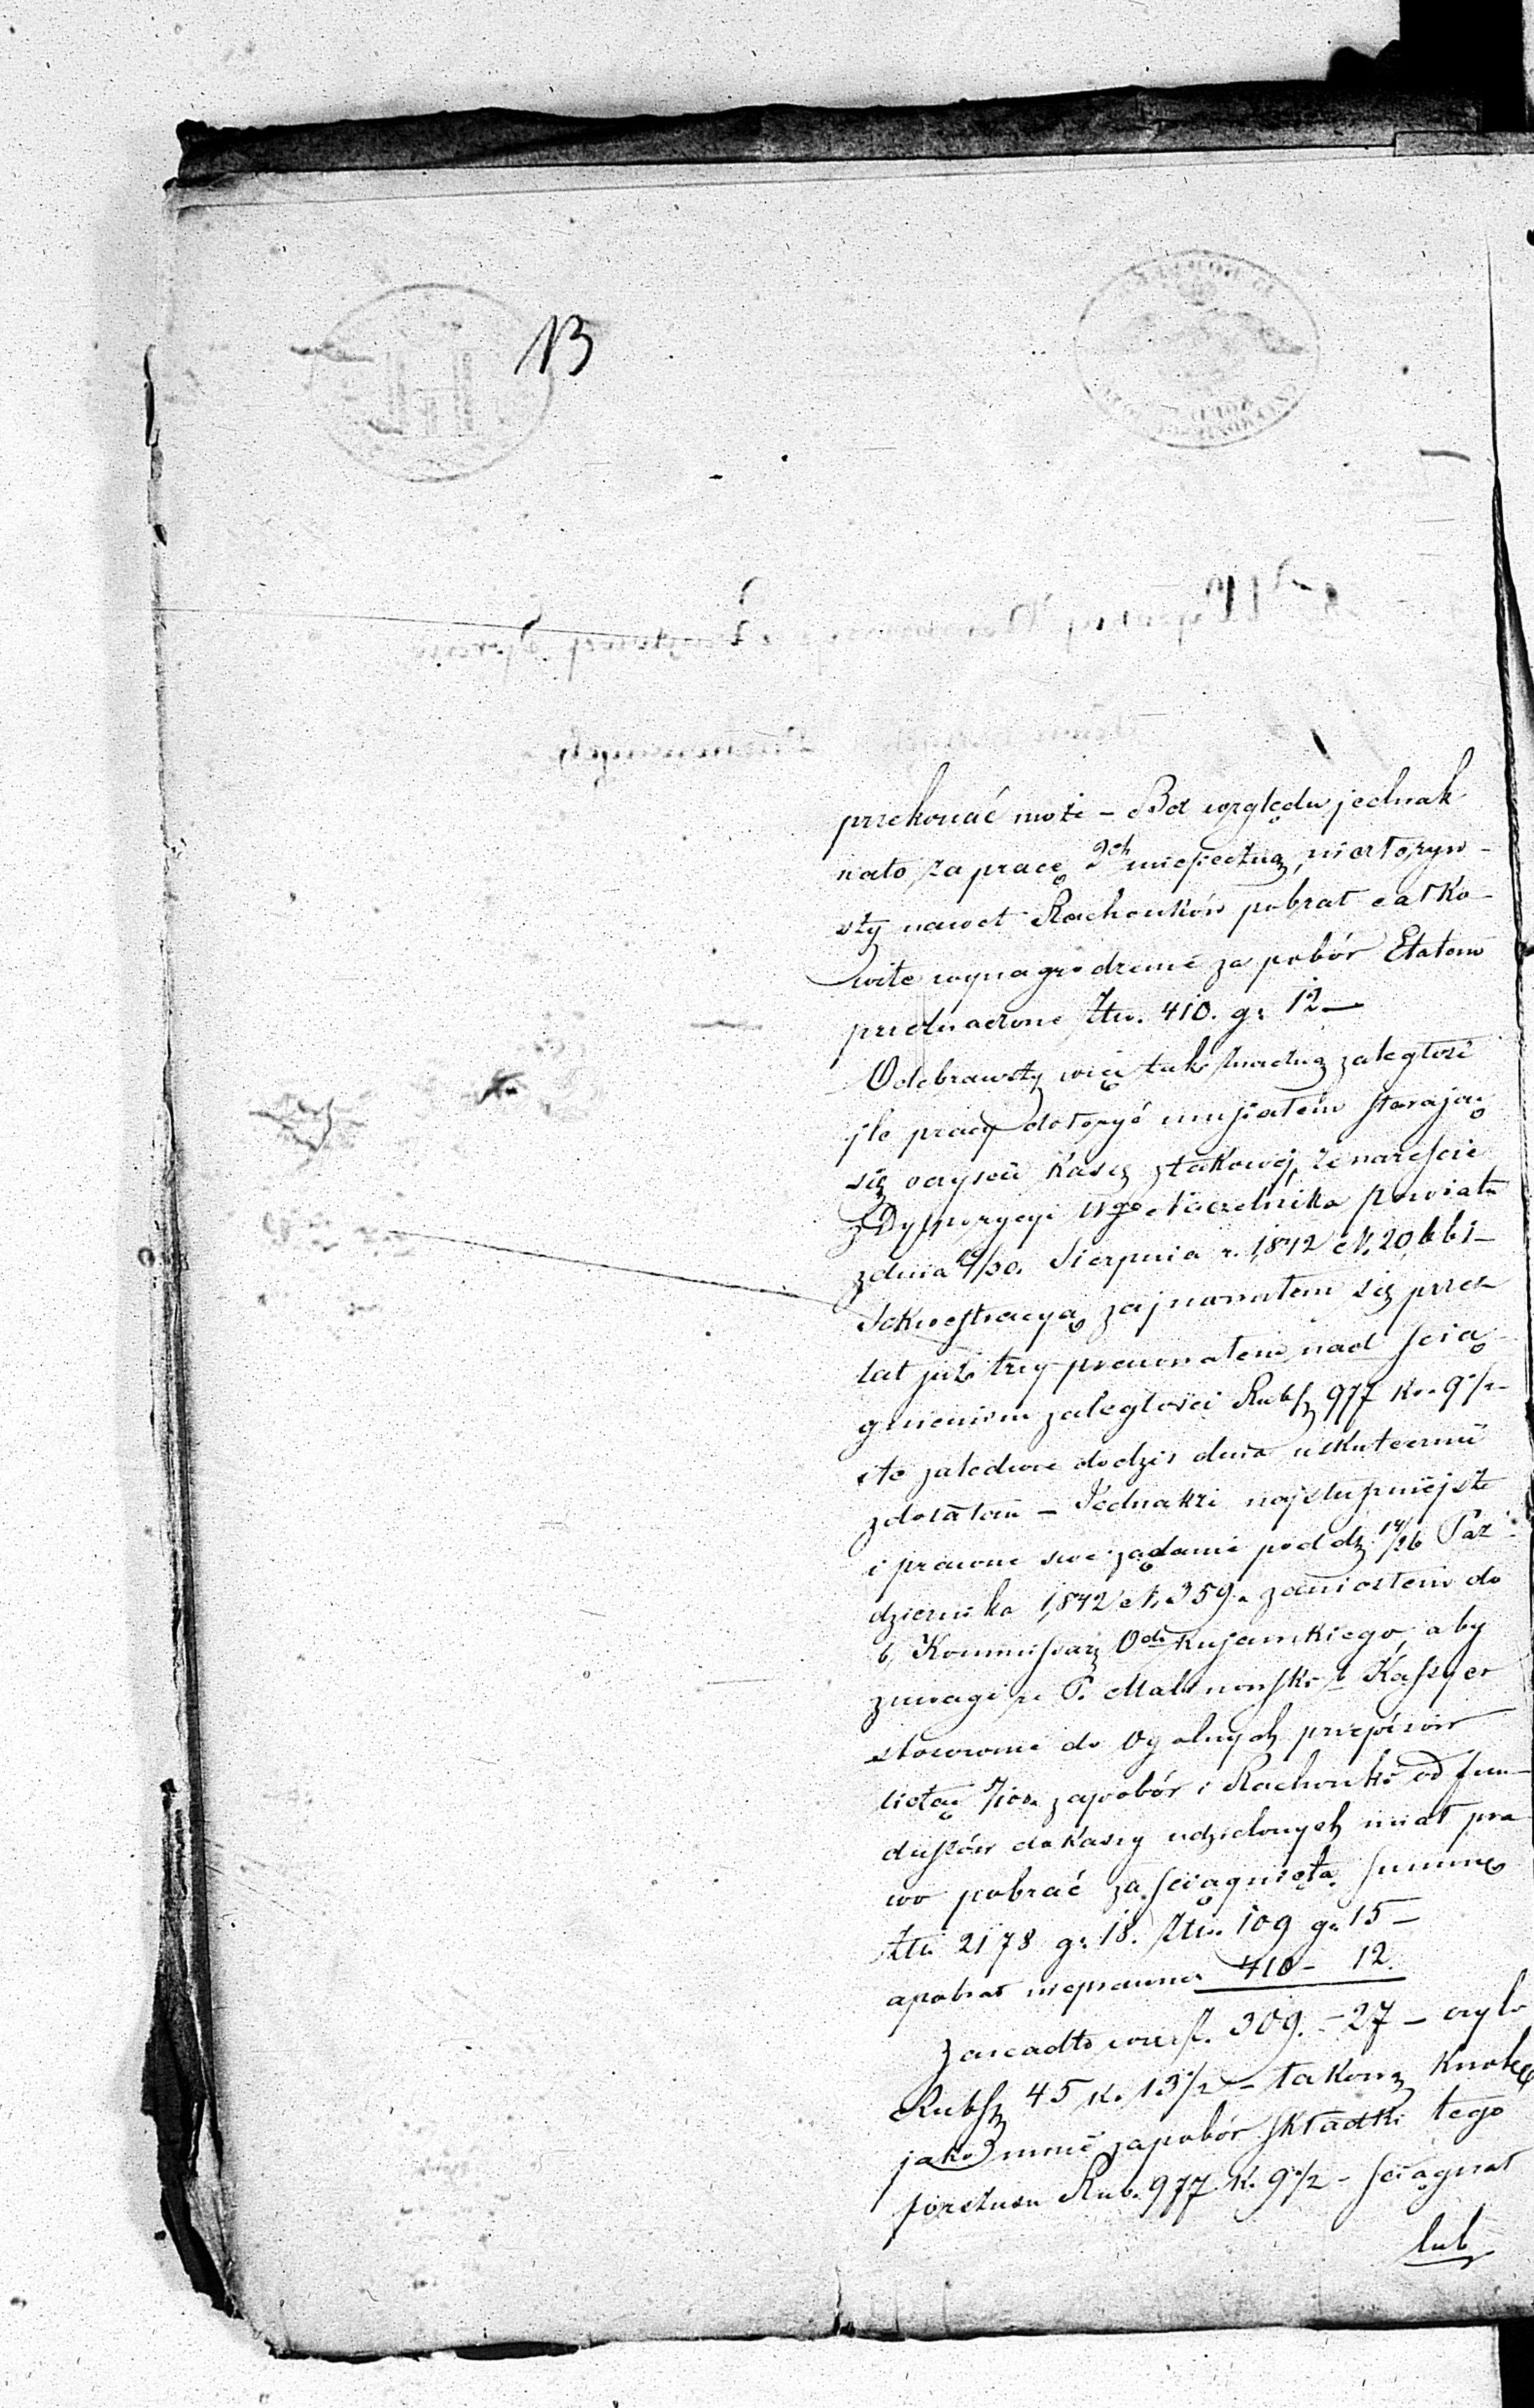 13
przekonać może – Bez względu jednak
na to, za pracę 2ch miesięczną, niezłożyw-
szy nawet Rachonków pobrał całko-
wite wynagrodzenie za pobór Etatem
przeznaczone Złn. 410. gr 12 –
Odebrawszy więc tak znaczną zaległość
jle pracy dołożyć musiałem starając
się oczyścić Kassę z takowej, że nareście
z Dyspozycyi Wgo Naczelnika Powiatu
z dnia 18/30. Sierpnia r. 1842 N. 20,661 –
Sekwestracyą zajmowałem się przez
lat już trzy pracowałem nad ścią
gnieniem zaległości Rubsr 977 K. 9 1/2 –
i to zaledwie do dziś dnia uskutecznić
zdołałem – Jednakże
i prawne swe żądanie pod dz. 14/26 Paź-
dziernika 1842 N. 359. zaniosłem do
b. Kommissarz Odu Kujawskiego, aby
z uwagi że P. Malinowski b. Kassyer
stosownie do Ogólnych przepisów
licząc 5/100 za pobór i Rachonki od fun-
duszów do Kassy udzielonych miał pra
wo pobrać za ściągniętą summę
Złn 2178 gr 18. Złn. 109 gr 15 –
a pobrał nieprawnie 410 – 12.
309. – 27 – czyli
Rubsr 45 K. 13 1/2 – takową kwotę
jako mnie za pobór składki tego
Rub. 977 K. 9 1/2 – ściągnął
lub